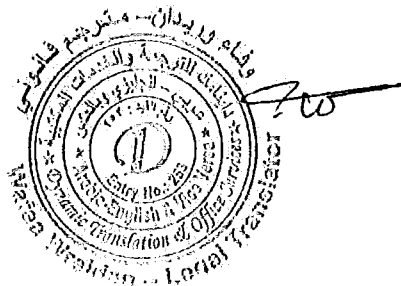 وفاء وريدان - مترجم قانوني
داينامك للترجمة والخدمات المكتبية
عربي - إنجليزي وبالعكس
D
Entry No.: 263
Arabic-English & Vice Versa
Dynamic Translation & Office Services
Wafaa Wreidan - Legal Translator